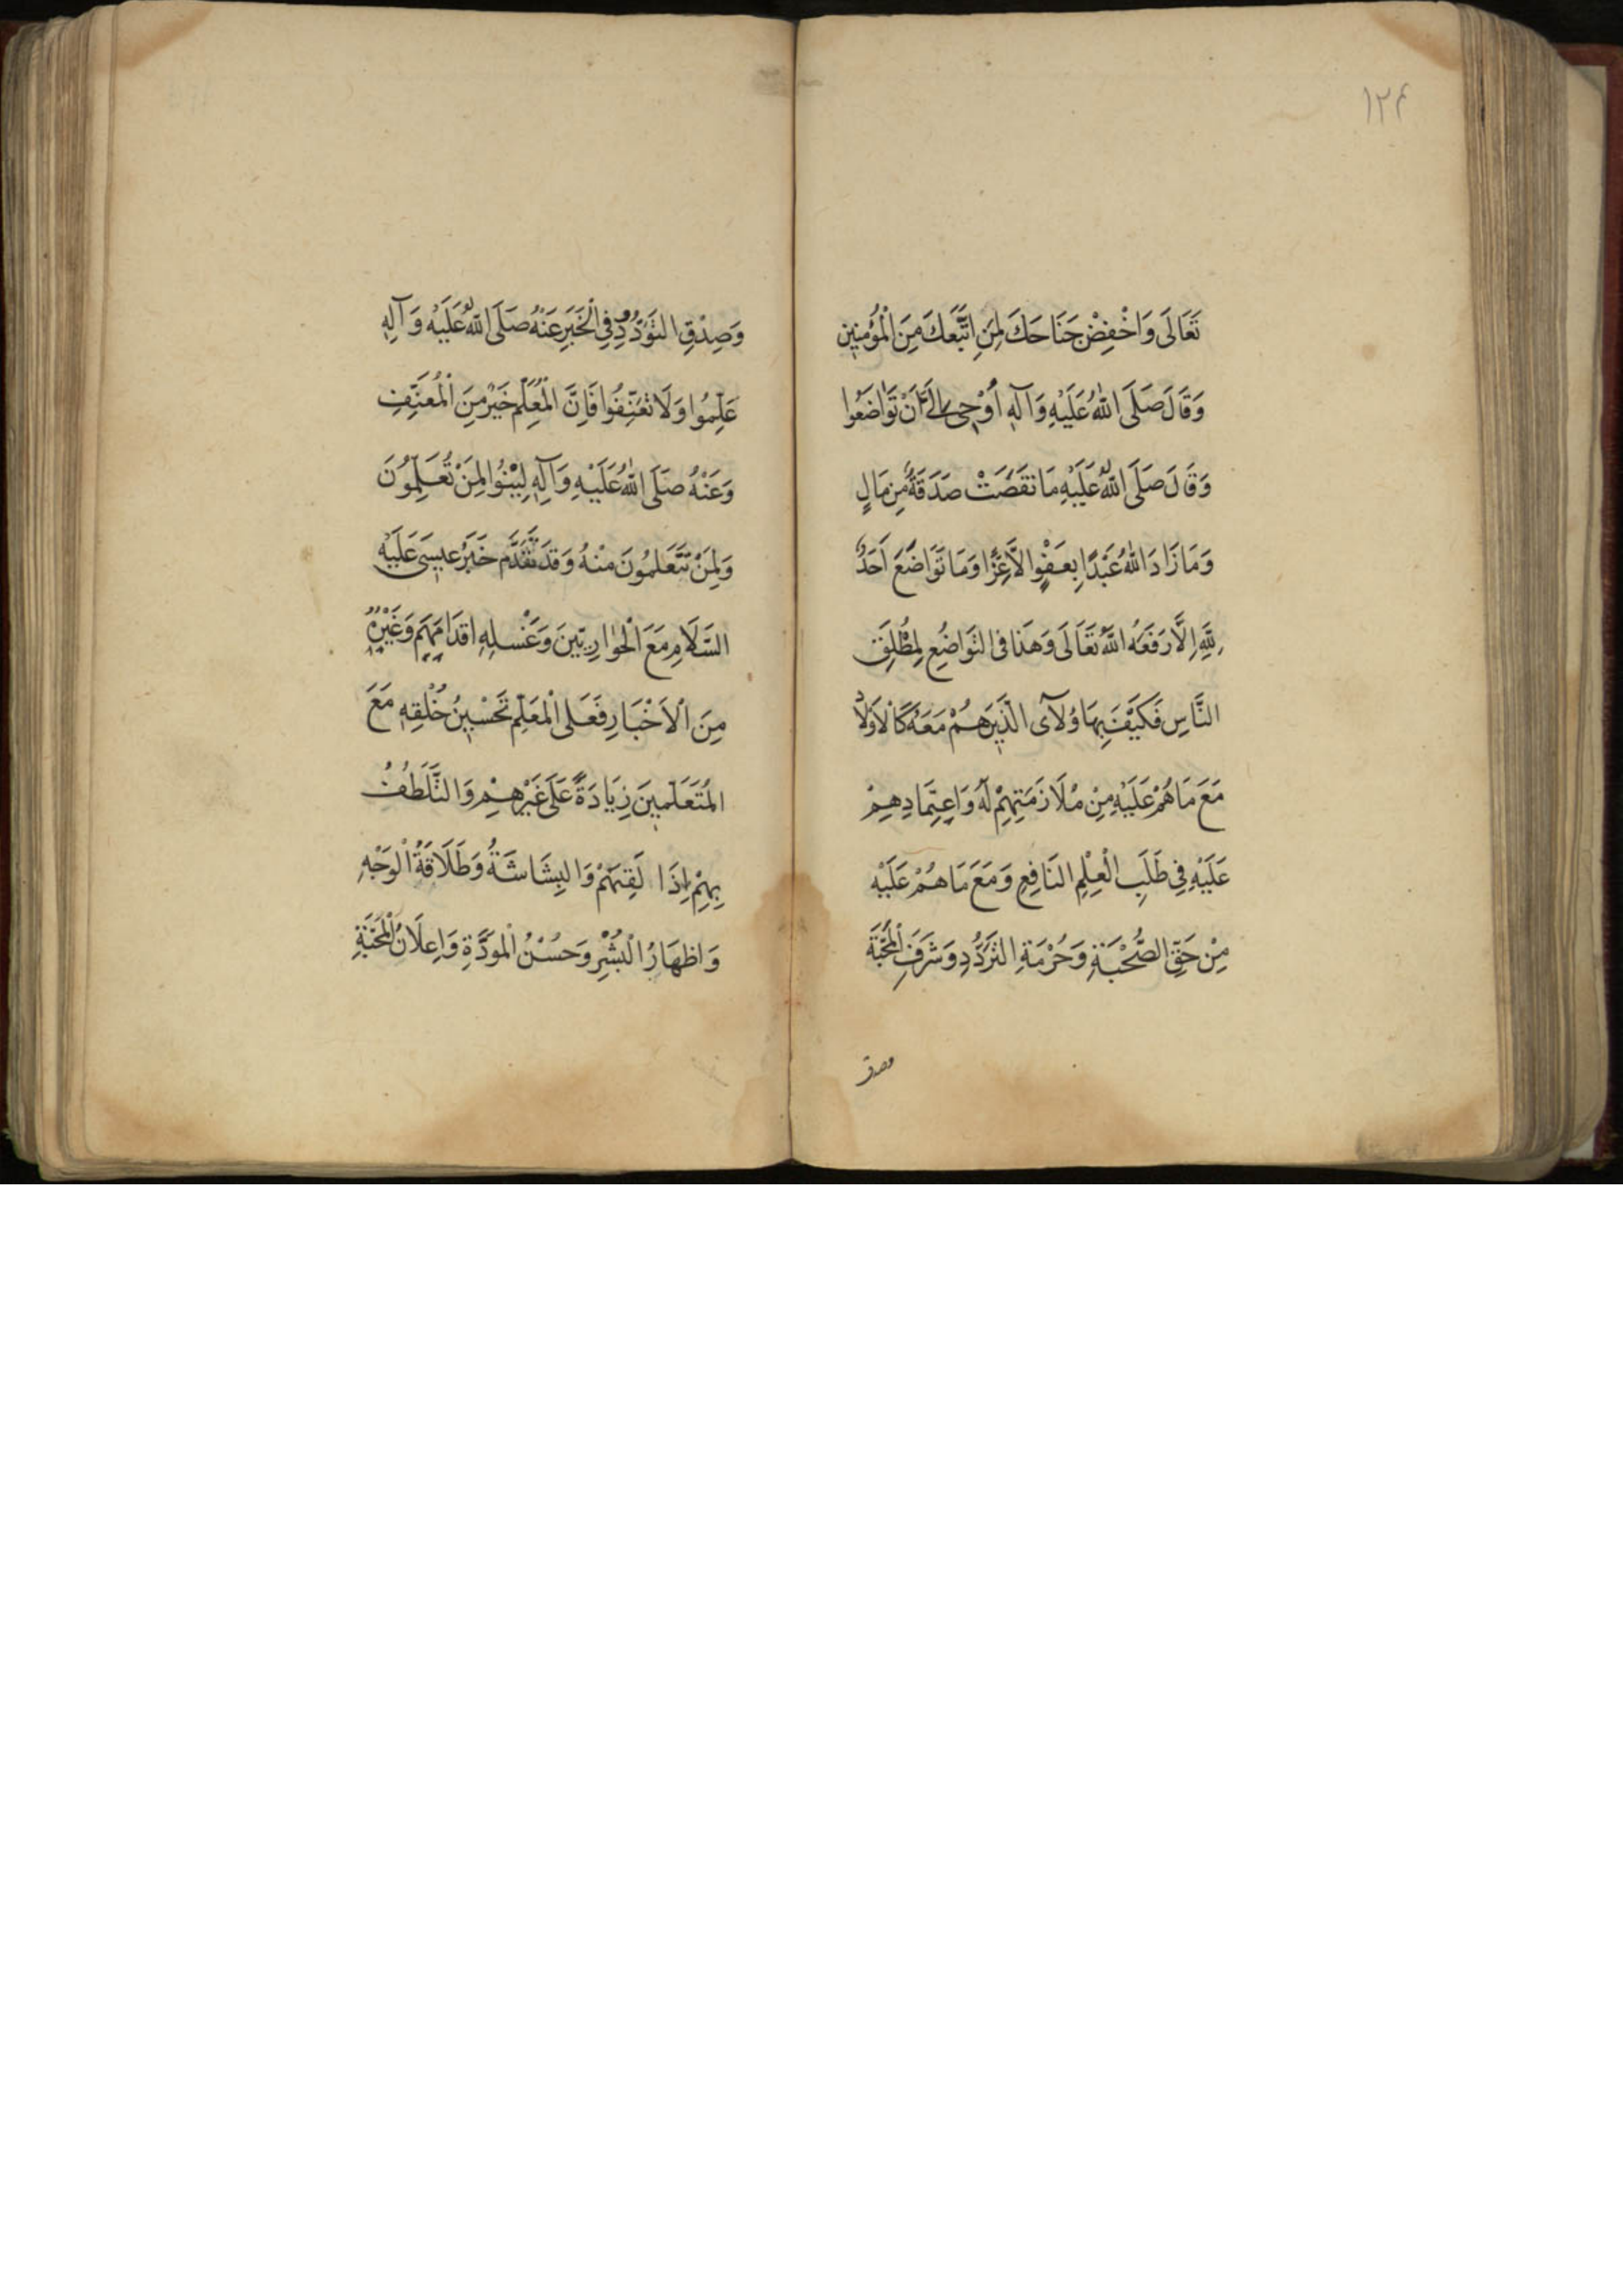 ١٢۴
تَعَالَى وَاخْفِضْ جَنَاحَكَ لِمَنِ اتَّبَعَكَ مِنَ الْمُؤْمِنِينَ
وَقَالَ صَلَّى اللهُ عَلَيْهِ وَآلِهِ أُوْحِيَ إِلَيَّ أَنْ تَوَاضَعُوا
وَقَالَ صَلَّى اللهُ عَلَيْهِ مَا نَقَصَتْ صَدَقَةٌ مِنْ مَالٍ
وَمَا زَادَ اللهُ عَبْدًا بِعَفْوٍ إِلَّا عِزًّا وَمَا تَوَاضَعَ أَحَدٌ
لِلَّهِ إِلَّا رَفَعَهُ اللهُ تَعَالَى وَهَذَا فِي التَّوَاضُعِ لِمُطْلَقِ
النَّاسِ فَكَيْفَ بِهَاؤُلَآءِ الَّذِينَ هُمْ مَعَهُ كَالْأَوْلَادِ
مَعَ مَا هُمْ عَلَيْهِ مِنْ مُلَازَمَتِهِمْ لَهُ وَاِعْتِمَادِهِمْ
عَلَيْهِ فِي طَلَبِ الْعِلْمِ النَّافِعِ وَمَعَ مَا هُمْ عَلَيْهِ
مِنْ حَقِّ الصُّحْبَةِ وَحُرْمَةِ التَّرَدُّدِ وَشَرَفِ الْمَحَبَّةِ
وصدق
وَصِدْقِ التَّوَدُّدِ فِي الْخَبَرِ عَنْهُ صَلَّى اللهُ عَلَيْهِ وَآلِهِ
عَلِّمُوا وَلَا تُعَنِّفُوا فَإِنَّ الْمُعَلِّمَ خَيْرٌ مِنَ الْمُعَنِّفِ
وَعَنْهُ صَلَّى اللهُ عَلَيْهِ وَآلِهِ لِيْنُوا لِمَنْ تُعَلِّمُونَ
وَلِمَنْ تَتَعَلَّمُونَ مِنْهُ وَقَدْ تَقَدَّمَ خَبَرُ عِيسَى عَلَيْهِ
السَّلَامُ مَعَ الْحَوَارِيِّينَ وَغَسْلِهِ اَقْدَامَهُمْ وَغَيْرِهِ
مِنَ الْأَخْبَارِ فَعَلَى الْمُعَلِّمِ تَحْسِينُ خُلْقِهِ مَعَ
الْمُتَعَلِّمِينَ زِيَادَةً عَلَى غَيْرِهِمْ وَالتَّلَطُّفُ
بِهِمْ إِذَا لَقِيَهُمْ وَالْبِشَاشَةُ وَطَلَاقَةُ الْوَجْهِ
وَاِظْهَارُ الْبُشْرِ وَحُسْنُ الْمَوَدَّةِ وَاِعْلَانُ الْمَحَبَّةِ